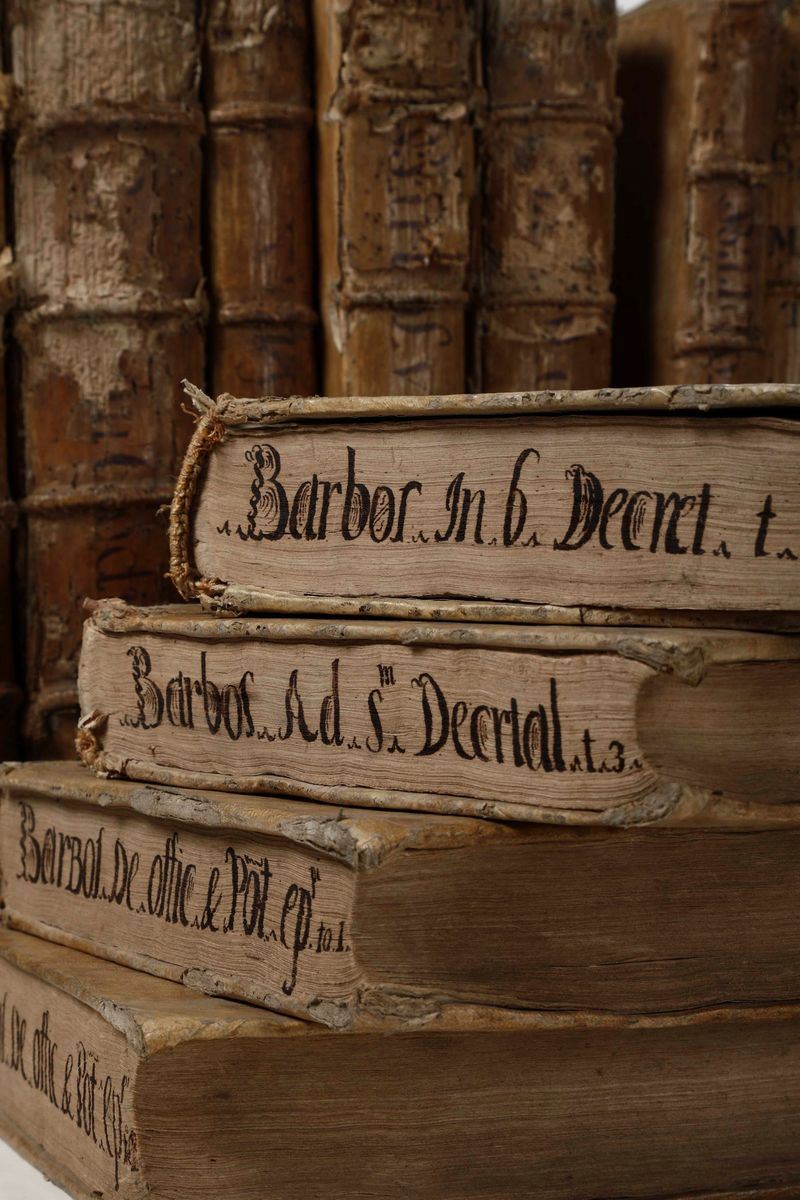 Barbos. In. 6. Decret. t.
Barbos. Ad. s.m Decrtal. t. 3.
Barbos. De. offic. & Pōt. ep. to. 1.
De. offic & Pōt. ep